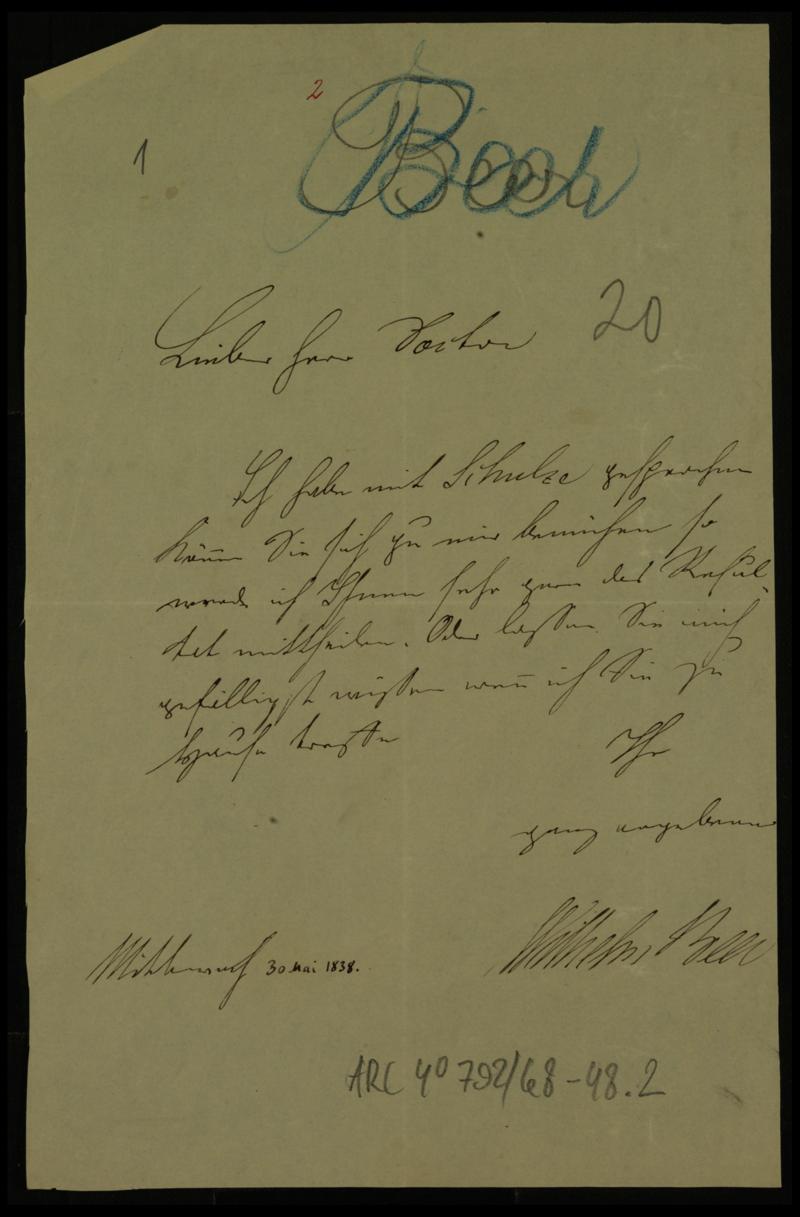 2
1
Beer
20
Lieber Herr Doctor
Ich habe mit Schulze gesprochen
Können Sie sich zu mir bemühen so
werde ich Ihnen sehr gern das Resul-
tat mittheilen. Oder lassen Sie mich
gefälligst wissen wenn ich Sie zu
Hause treffe
Ihr
ganz ergebener
Wilhelm Beer
Mittwoch 30 Mai 1838.
ARC 4° 792/68-48.2